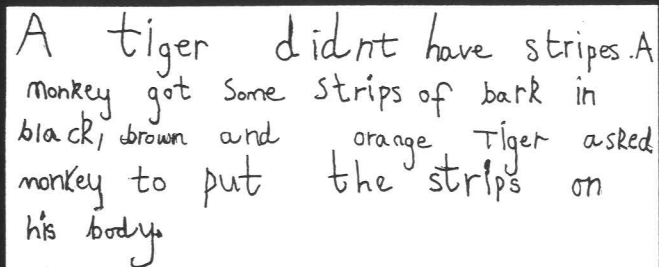 A tiger didnt have stripes. A
monkey got some strips of bark in
black, brown and orange Tiger asked
monkey to put the strips on
his body.